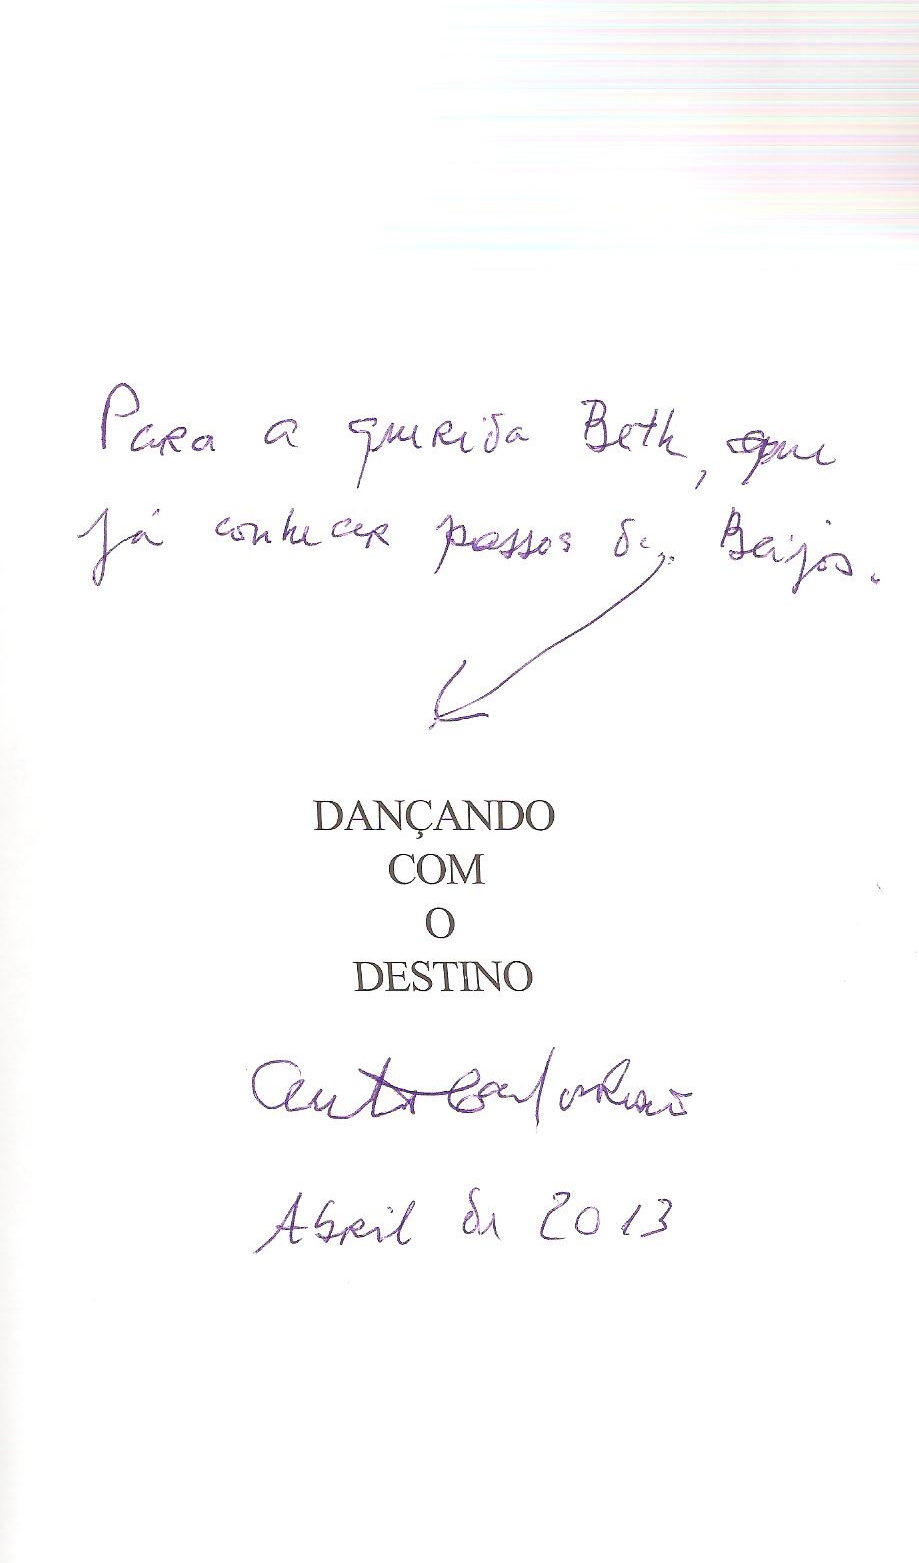 Para a querida Beth, que
já conhecer passos de... Beijos.
DANÇANDO
COM
O
DESTINO
Abril de 2013